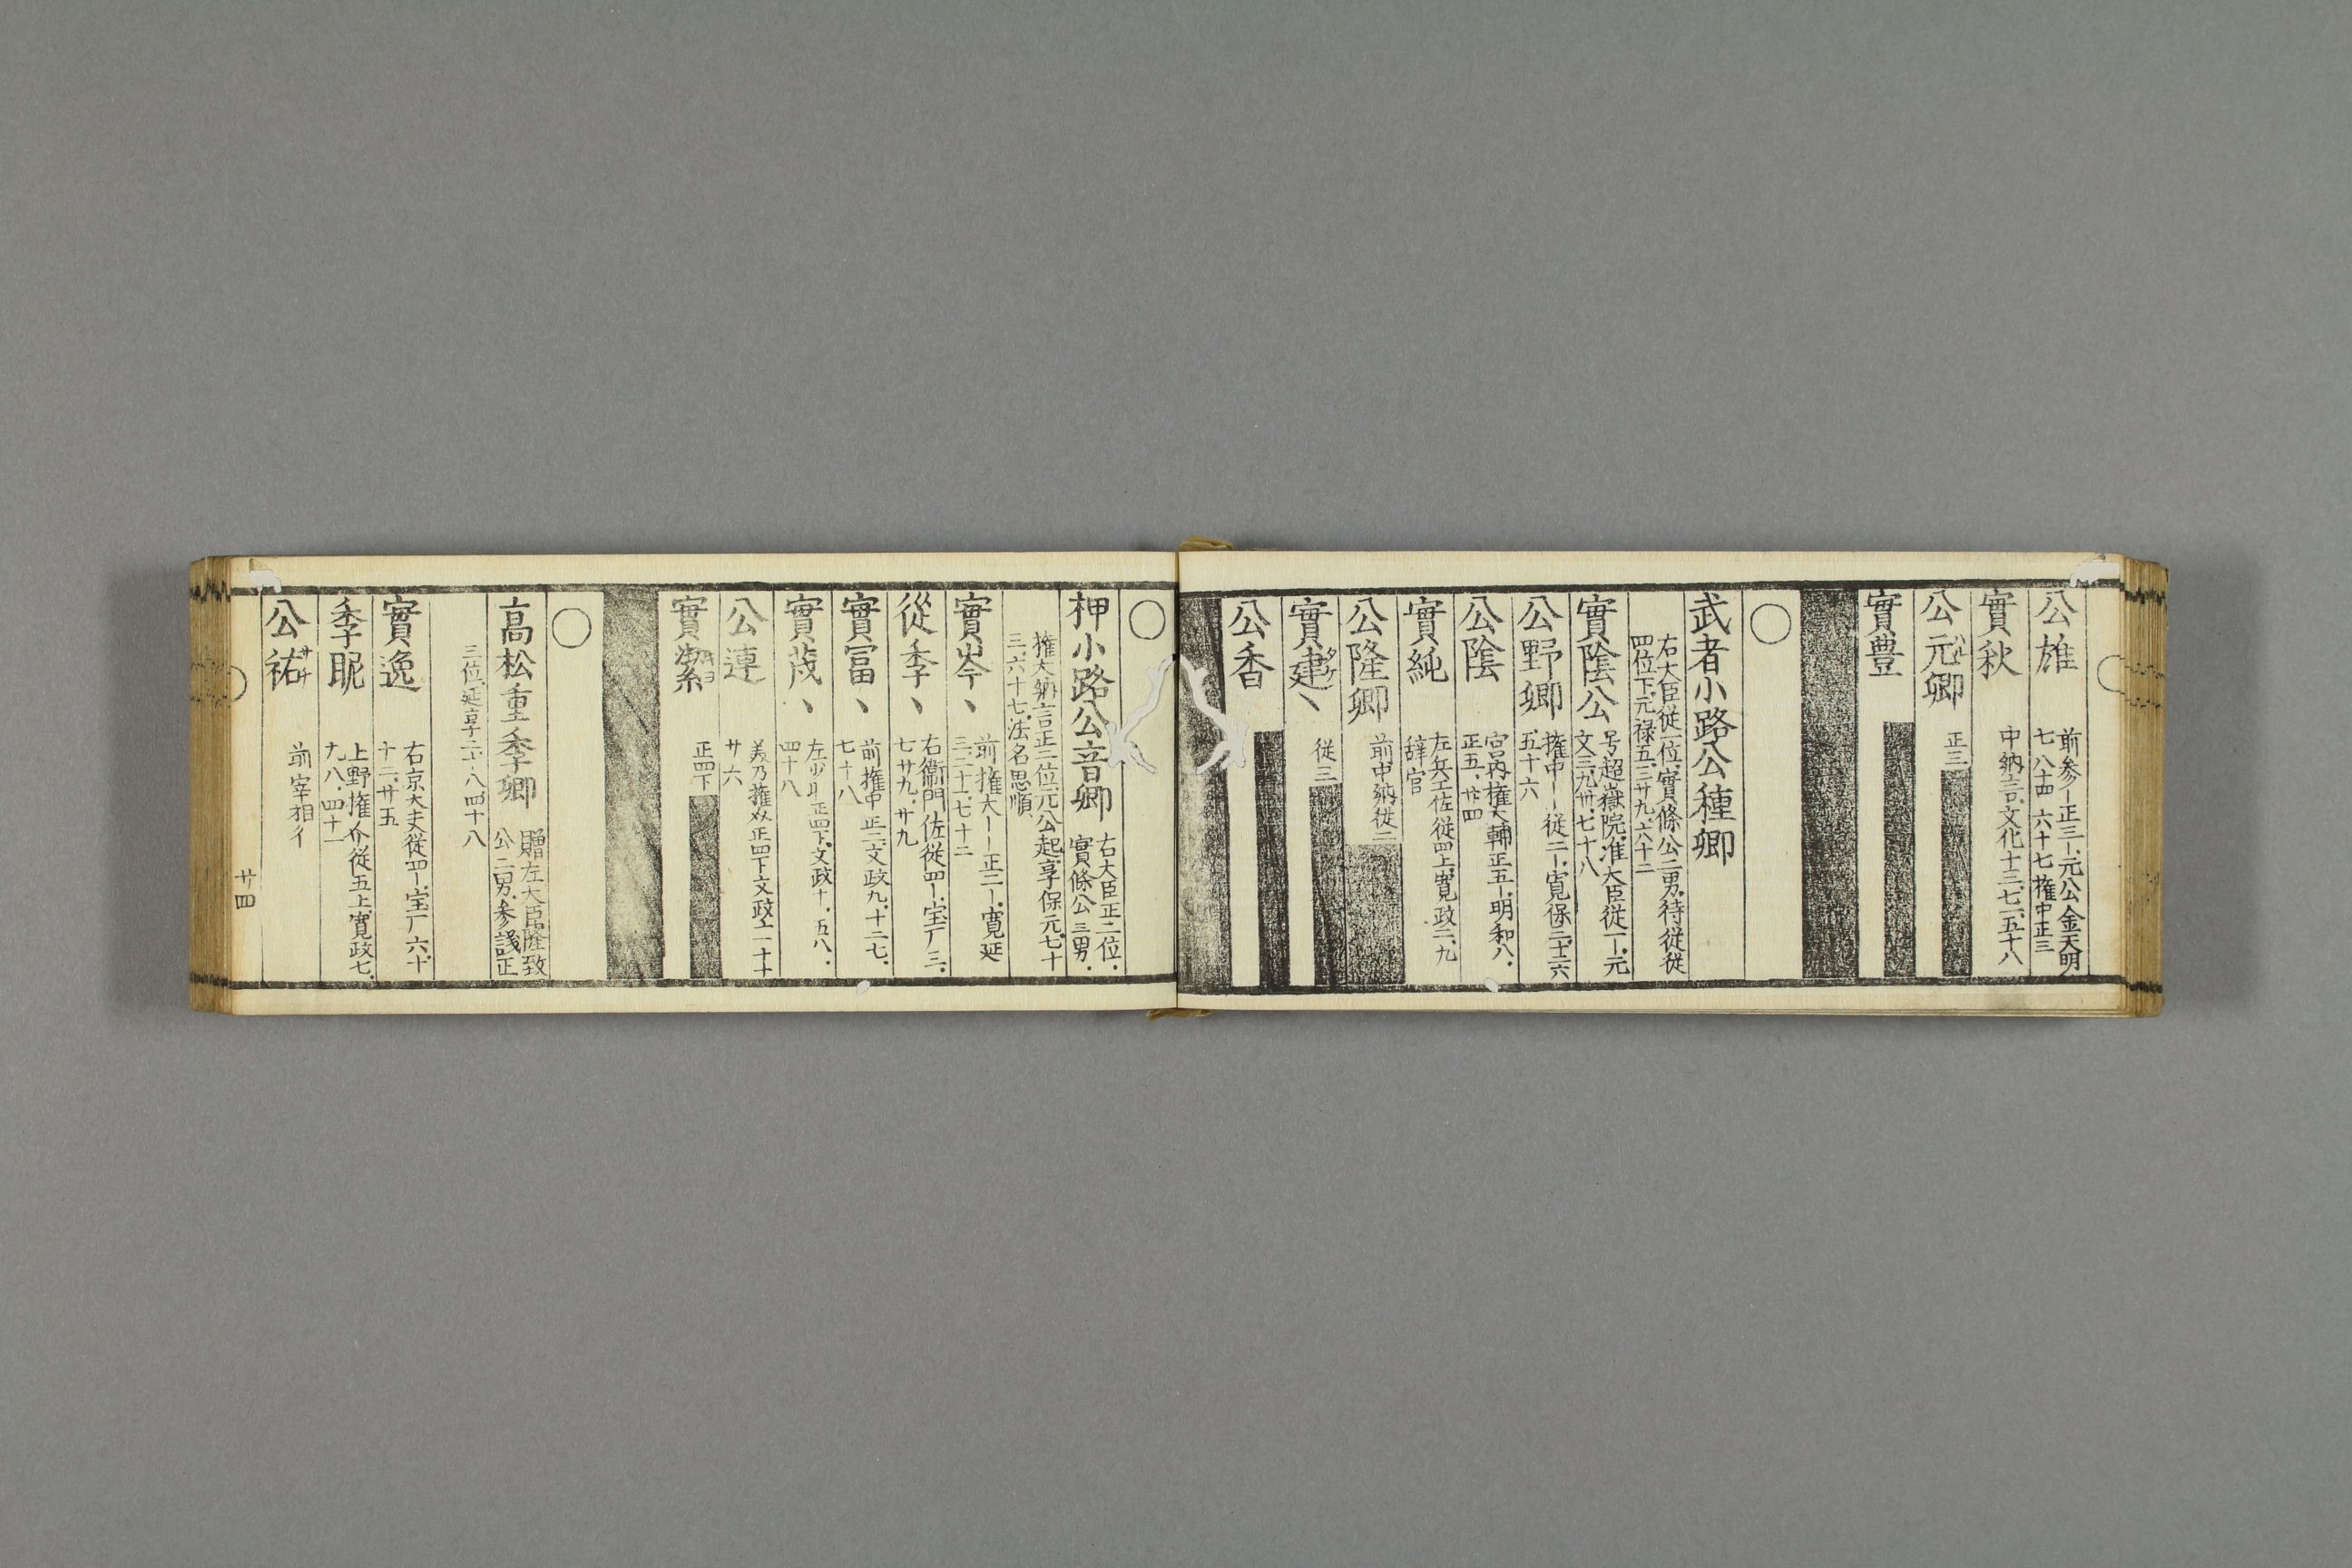 公雄 前参ー正三ー.元公金天明
七八十四 六十七 権中正三
實秋 中納言.文化十三.七.二.五十八
公元卿 ハル 正三
實豊
○
武者小路公種卿
右大臣従一位.實條公二男.待従従
四位下.元禄五.三廿九.六十二
實陰公 号超嶽院.准大臣従一ー.元
文三.九卅.七十八
公野卿 権中ー従二ー.寛保三.十二六
五十六
公陰 宮内権大輔正五ー.明和八.
正五.廿四
實純 左兵工佐従四上.寛政二.九
辞官
公隆卿 前中納従二
實建 タケ 従三
公香
○
押小路公音卿 右大臣正二位.
實條公三男.
権大納言正二位.元公起.享保元.七.十
三.六十七.法名思順
實岑丶 前権大ー正二ー.寛延
三.二十一.七十二
從季丶 右衛門佐従四ー.宝厂三.
七廿九.廿九
實富丶 前権中正二.文政九.十二七.
七十八
實茂丶 左少正四下.文政十.五八.
四十八
公連 美乃権正四下文政二十十
廿六
實潔 キヨ 正四下
○
高松重季卿 贈左大臣隆致
公二男.参議正
三位.延享二.八四十八
實逸 右京大夫従四ー.宝厂六.十
十二.廿五
季昵 上野権介従五上.寛政七.
九八.四十一
公祐 サチ 前宰相イ
廿四